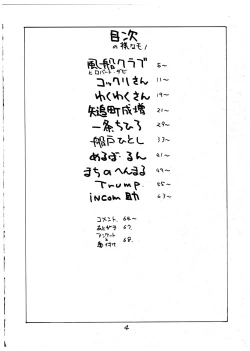 目次
の様なモノ
風船クラブ 5〜
とロバート・ザビ
コックリさん 11〜
わくわくさん 19〜
矢追町成増 21〜
一条ちひろ 29〜
船戸ひとし 33〜
めるば・るん 41〜
まちのへんまる 49〜
Trump. 55〜
incom助 63〜
コメント. 66〜
あとがき 67.
アンケート
&
奥付ケ 68.
4